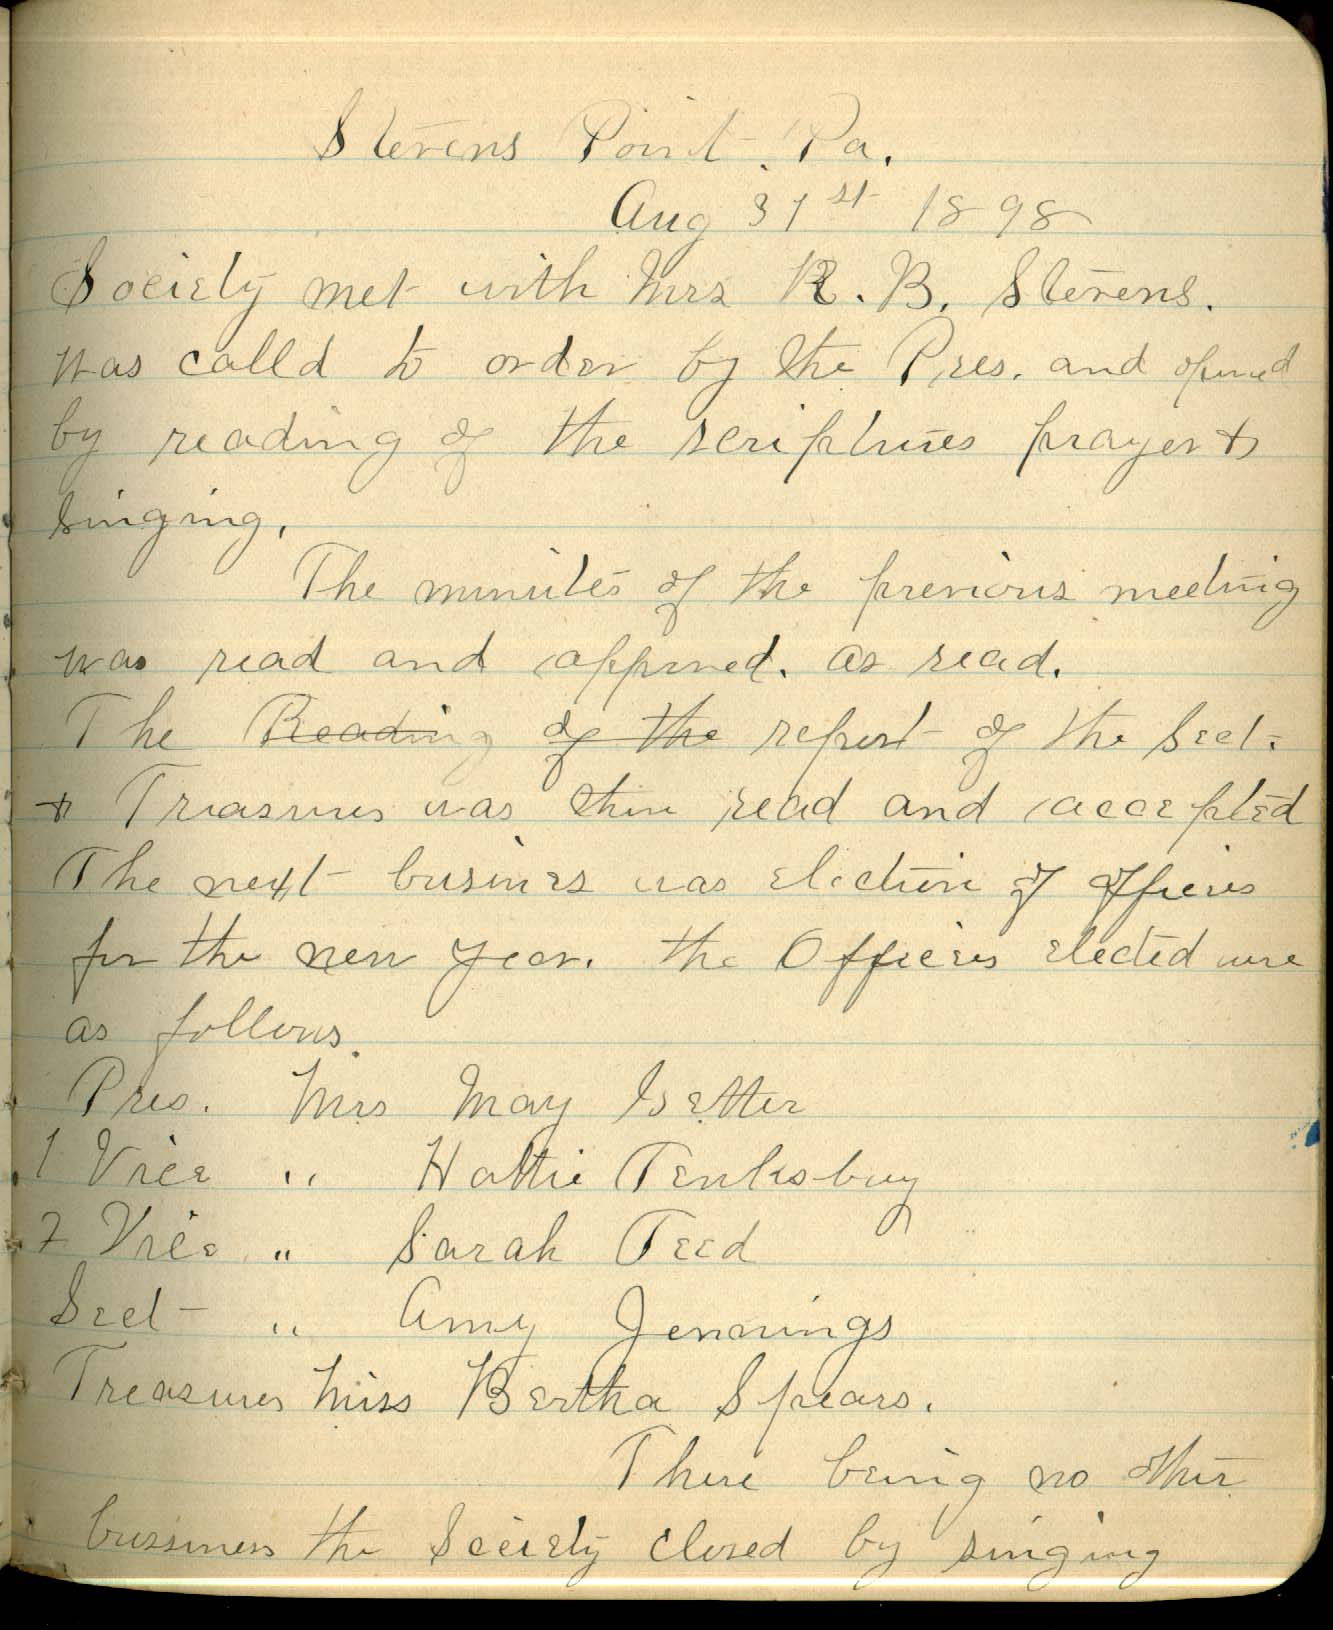 Stevens Point Pa.
Aug 31st 1898
Society met with Mrs R. B. Stevens.
was calld to order by the Pres. and opened
by reading of the scriptures prayer &
singing.
The minutes of the previous meeting
was read and approved. as read.
The Reading of the report of the Sect.
& Treasures was then read and accepted
The next business was election of officers
for the new year. the Officers elected were
as follows.
Pres. Mrs May Getter
1 Vice " Hattie Tewksbury
2 Vice " Sarah Teed
Sect - " Amy Jennings
Treasurer Miss Bertha Spears.
There being no other
bussiness the Society closed by singing